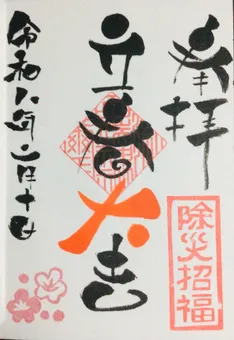 奉拝
除災招福
立春大吉
令和八年二月十日